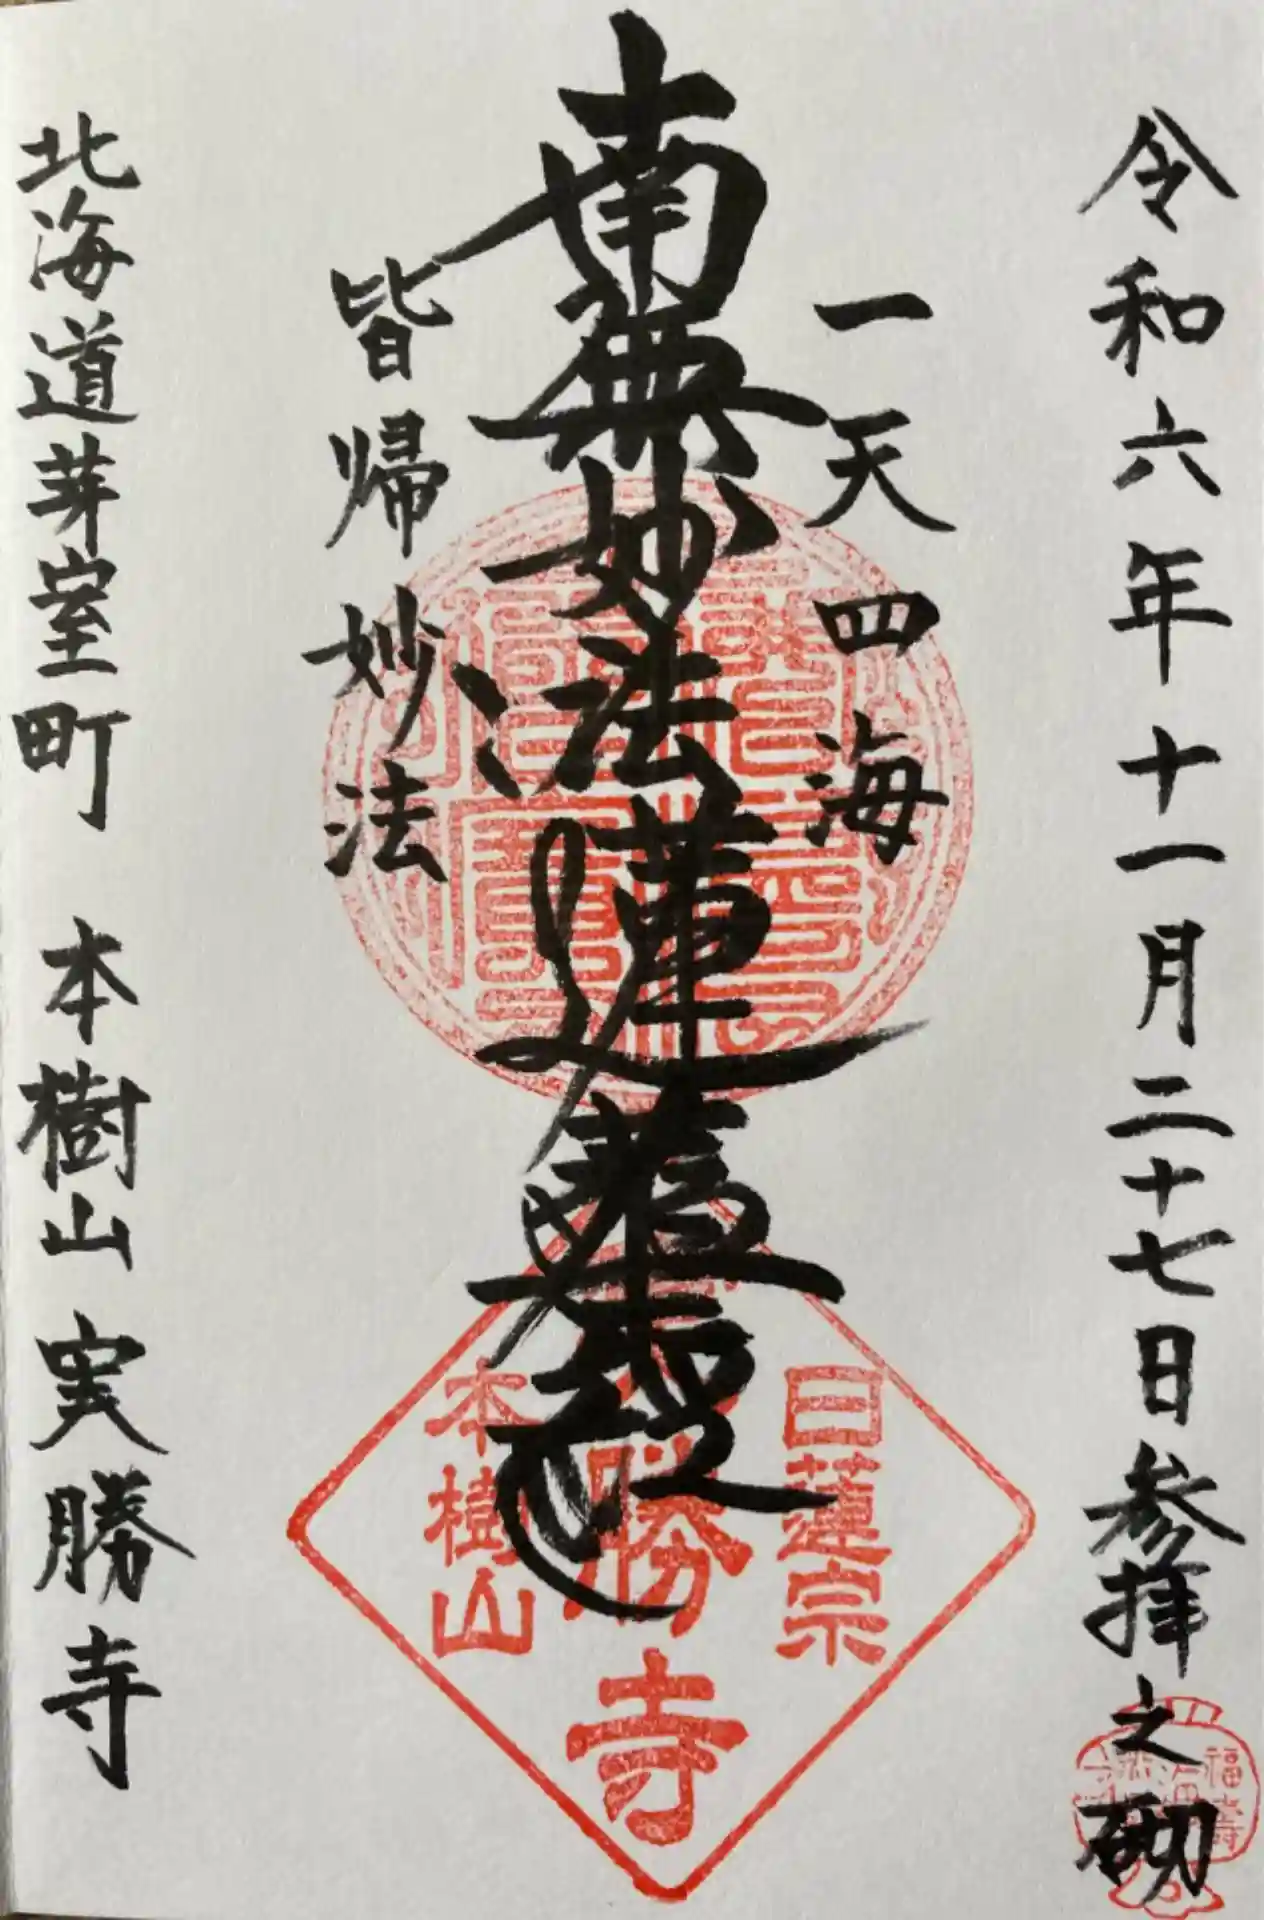 令和六年十一月二十七日参拝之砌
一天四海
南無妙法蓮華経
皆帰妙法
北海道芽室町 本樹山 実勝寺
日蓮宗
勝寺
本樹山
福寿